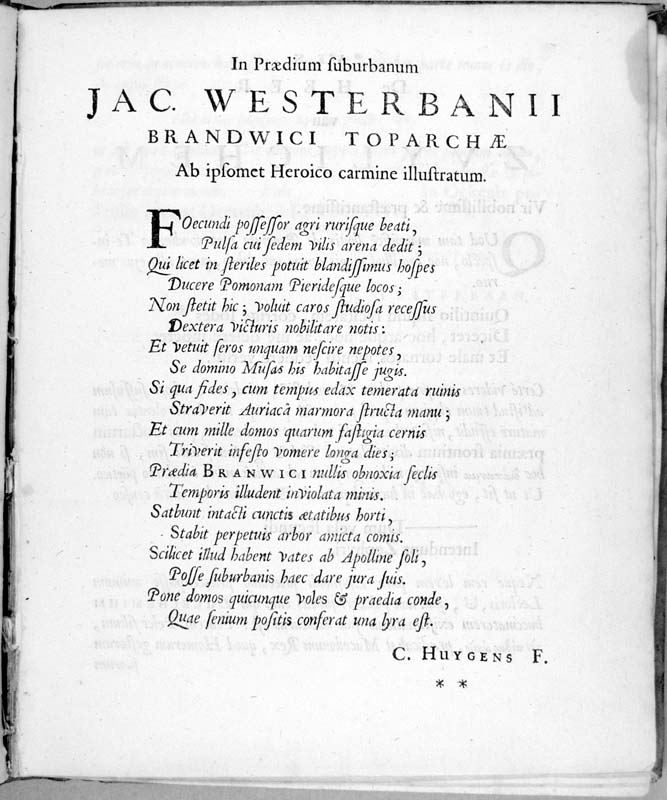 In Prædium ſuburbanum
JAC. WESTERBANII
BRANDWICI TOPARCHÆ
Ab ipſomet Heroico carmine illuſtratum.
FOecundi poſſeſſor agri ruriſque beati,
Pulſa cui ſedem vilis arena dedit;
Qui licet in ſteriles potuit blandiſſimus hoſpes
Ducere Pomonam Pieridesque locos;
Non ſtetit hic; voluit caros ſtudioſa receſſus
Dextera victuris nobilitare notis:
Et vetuit ſeros unquam neſcire nepotes,
Se domino Muſas his habitaſſe jugis.
Si qua fides, cum tempus edax temerata ruinis
Straverit Auriacâ marmora ſtructa manu;
Et cum mille domos quarum faſtigia cernis
Triverit infeſto vomere longa dies;
Prædia BRANWICI nullis obnoxia ſeclis
Temporis illudent inviolata minis.
Satbunt intacti cunctis ætatibus horti,
Stabit perpetuis arbor amicta comis.
Scilicet illud habent vates ab Apolline ſoli,
Poſſe ſuburbanis haec dare jura ſuis.
Pone domos quicunque voles & praedia conde,
Quae ſenium poſitis conferat una lyra eſt.
C. HUYGENS F.
* *